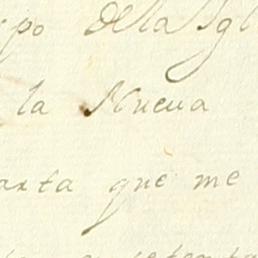 po de la Igl
la Nueva
arta que me